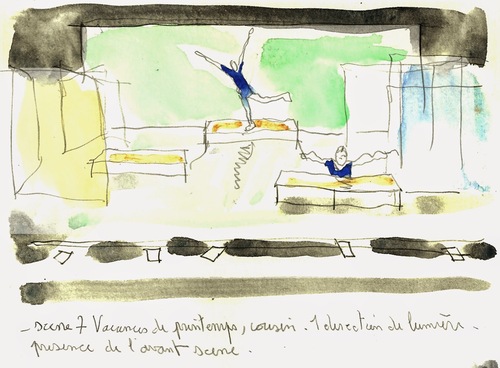 - scene 7 Vacances de printemps, cousin. 1 direction de lumière.
presence de l'avant scene.